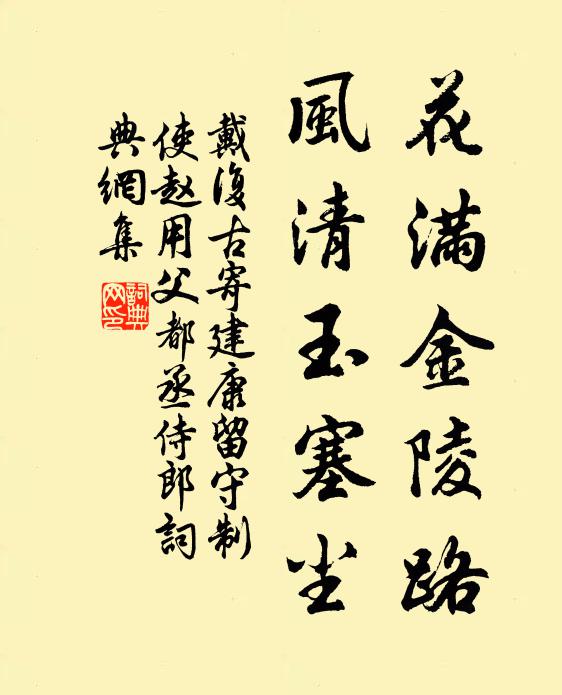 花滿金陵路
風清玉塞尘
戴復古寄建康留守制
使赵用父都丞侍郎詞
典網集
詞典
网印